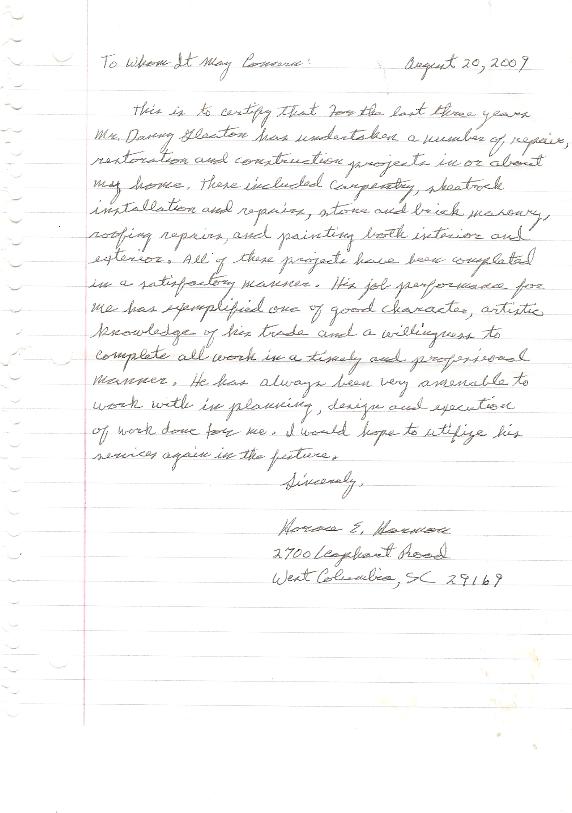 To Whom It May Concern: August 20, 2009
This is to certify that for the last three years
Mr. Danny Gleaton has undertaken a number of repair,
restoration and construction projects in or about
my home. These included carpentry, sheatrock
installation and repairs, stone and brick masonry,
roofing repairs, and painting both interior and
exterior. All of these projects have been completed
in a satisfactory manner. His job performance for
me has exemplified one of good character, artistic
knowledge of his trade and a willingness to
complete all work in a timely and professional
manner. He has always been very amenable to
work with in planning, design and execution
of work done for me. I would hope to utilize his
services again in the future.
Sincerely,
Horace E. Harmon
2700 Leaphart Road
West Columbia, SC 29169